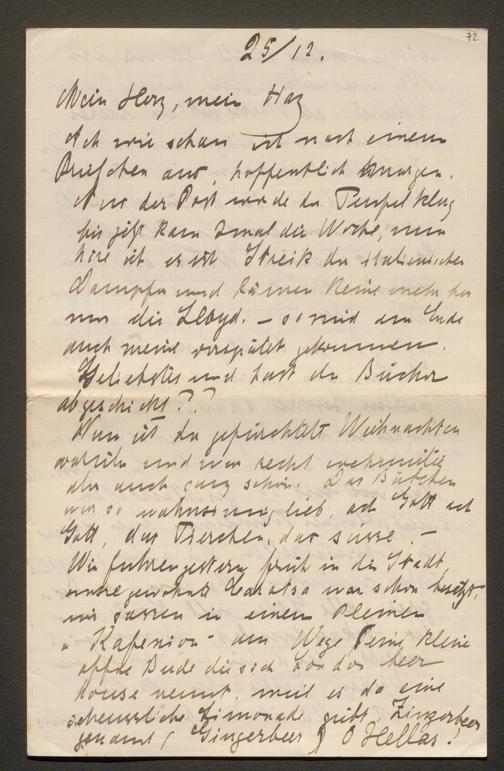 72
25/12.
Mein Herz, mein Herz
Ach wie schau ich nach einem
Briefchen aus, hoffentlich morgen.
Aus der Post wurde der Teufel klug
bis jetzt kam 2mal die Woche, nun
höre ich es ist Streik der italienischen
Dampfer und kämen keine mehr her
nur die Lloyd. – so wird am Ende
auch meine verspätet gekommen.
Geliebstes und hast du Bücher
abgeschickt??
Nun ist das gefürchtete Weihnachten
vorüber und war recht wehmütig
aber auch ganz schön. Das Bübchen
war so wahnsinnig lieb, ach Gott ach
Gott, das Tierchen, das süsse. –
Wir fuhren gestern früh in die Stadt,
unsre gewohnte war schon besetzt,
wir sassen in einem kleinen
"Kafenion" am Wege (eine kleine
offne Bude die sich London beer
house nennt, weil es da eine
scheussliche Limonade giebt, Zinzerbeer
genannt (Gingerbeer) O Hellas!